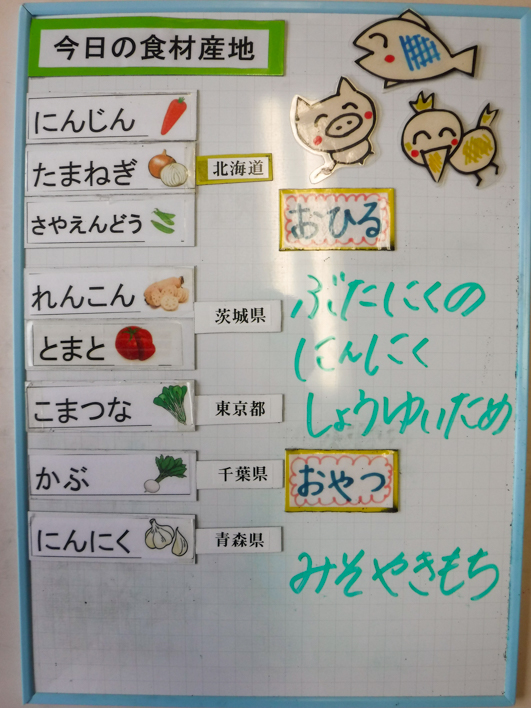 今日の食材産地
にんじん
たまねぎ
北海道
さやえんどう
れんこん
茨城県
とまと
こまつな
東京都
かぶ
千葉県
にんにく
青森県
おひる
ぶたにくの
にんにく
しょうゆいため
おやつ
みそやきもち